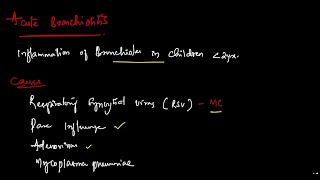 Acute Bronchiolitis
Inflammation of Bronchioles in children <2yr.
Causes
Respiratory Syncytial virus (RSV) - MC
Para Influenza ✓
Adenovirus ✓
Mycoplasma pneumoniae